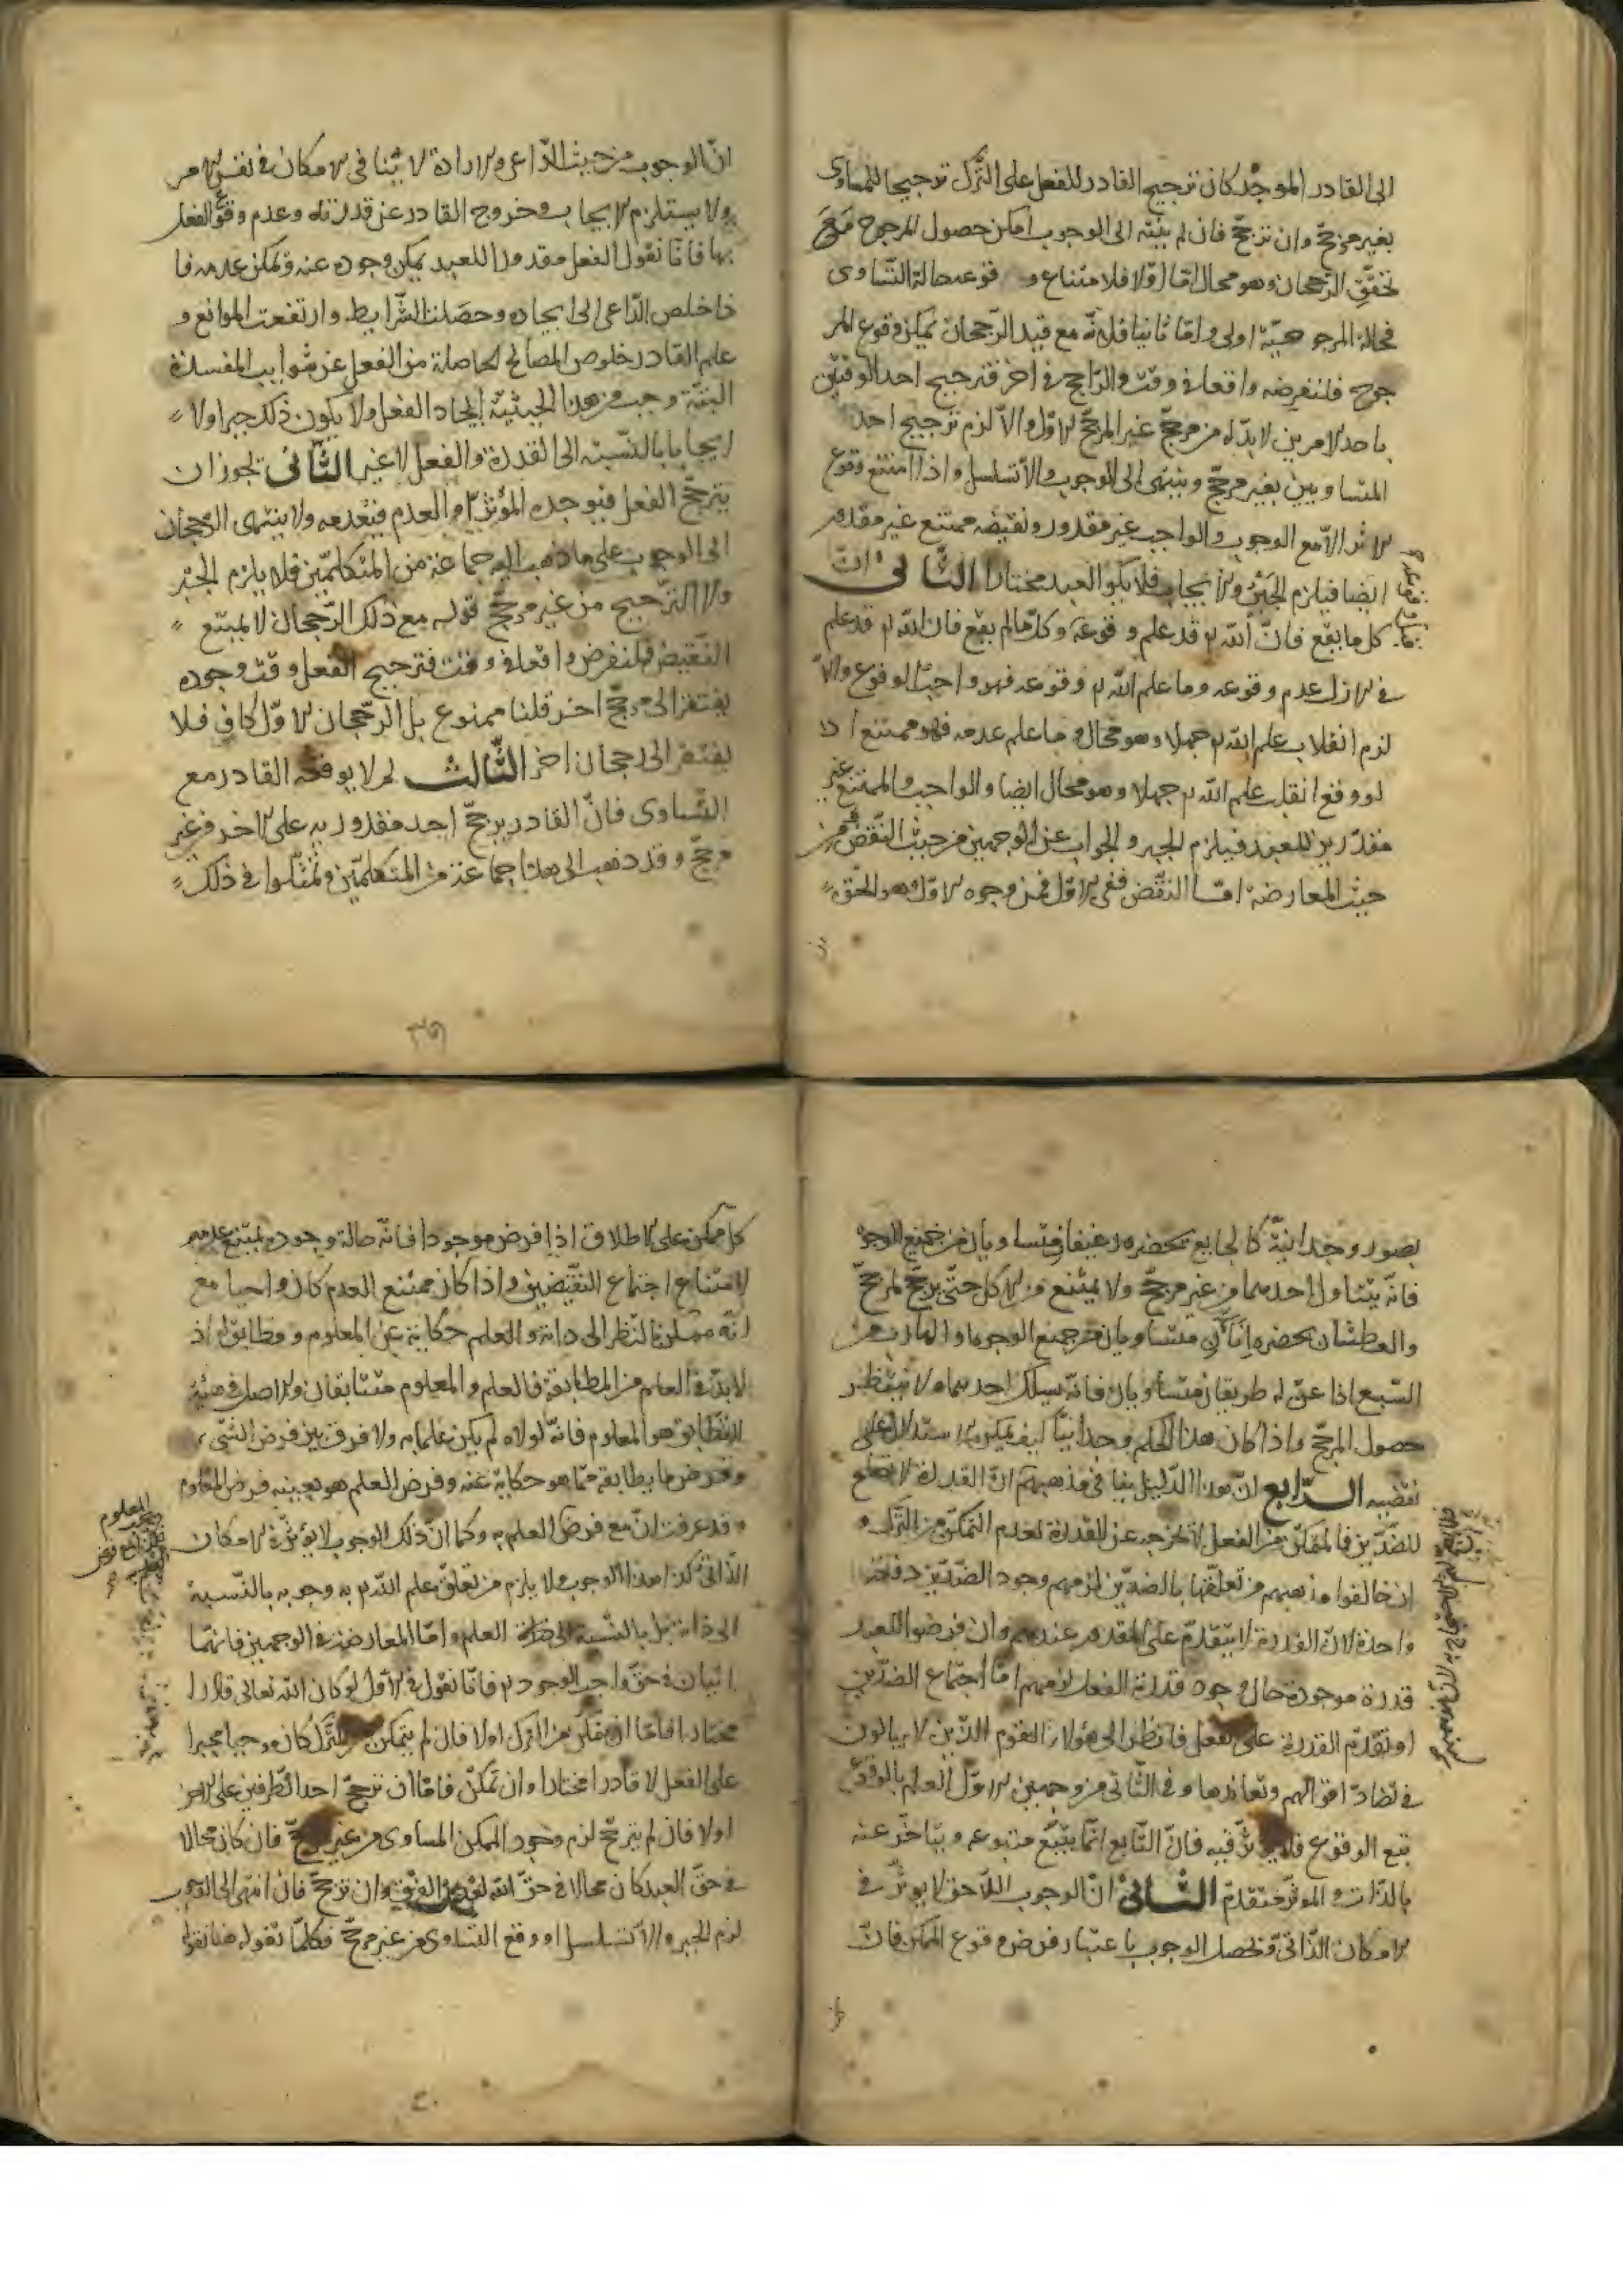 الى القادر الموجد كان ترجيح القادر للفعل على الترك ترجيحا للمساوى
بغير مرجّح وان ترجّح فان لم ينته الى الوجوب امكن حصول المرجوح مع
تحقّق الرّجحان وهو محال امّا اوّلا فلامتناع وقوعه حالة التّساوى
فحالة المرجوحيّة اولى وامّا ثانيا فلانّه مع قيد الرّجحان يمكن وقوع المر
جوح فلنفرضه واقعا فى وقت والرّاجح فى اخر فترجيح احد الوقتين
باحد الامرين لا بدّ له من مرجّح غير المرجّح الاوّل والاّ لزم ترجيح احد
المتساويين بغير مرجّح وينتهى الى الوجوب والاّ تسلسل واذا امتنع وقوع
الاثر الاّ مع الوجوب والواجب غير مقدور ونقيضه ممتنع غير مقدور
ايضا فيلزم الجبر والايجاب فلا يكون العبد مختارا الثّانى انّ
كل ما يقع فانّ الله تع قد علم وقوعه وكلّ ما لم يقع فان الله تع قد علم
فى الازل عدم وقوعه وما علم الله تع وقوعه فهو واجب الوقوع والاّ
لزم انقلاب علم الله تع جهلا وهو محال وما علم عدمه فهو ممتنع اذ
لو وقع انقلب علم الله تع جهلا وهو محال ايضا والواجب والممتنع غير
مقدورين للعبد فيلزم الجبر والجواب عن الوجهين من حيث النّقض ومن
حيث المعارضة امّا النّقض ففى الاوّل فمن وجوه الاوّل وهو الحقّ
انّ الوجوب من حيث الدّاعى والارادة لا ينافى الامكان فى نفس الامر
ولا يستلزم الايجاب وخروج القادر عن قدرته وعدم وقوع الفعل
بها فانّا نقول الفعل مقدور للعبد يمكن وجوده عنه ويمكن عدمه فا
ذا خلص الدّاعى الى ايجاده وحصلت الشّرايط وارتفعت الموانع و
علم القادر خلوص المصالح الحاصلة من الفعل عن شوايب المفسدة
البتّة وجب من هذه الحيثيّة ايجاد الفعل ولا يكون ذلك جبرا ولا
ايجابا بالنّسبة الى القدرة والفعل لا غير الثّانى يجوز ان
يترجّح الفعل فيوجده المؤثّر او العدم فيعدمه ولا ينتهى الرّجحان
الى الوجوب على ما ذهب اليه جماعة من المتكلّمين فلا يلزم الجبر
ولا الترجيح من غير مرجّح قوله مع ذلك الرّجحان لا يمتنع
النّقيض فلنفرض واقعا فى وقت فترجيح الفعل وقت وجوده
يفتقر الى مرجّح اخر قلنا ممنوع بل الرّجحان الاوّل كاف فلا
يفتقر الى رجحان اخر الثّالث لم لا يوقعه القادر مع
التّساوى فانّ القادر يرجّح احد مقدوريه على الاخر من غير
مرجّح وقد ذهب الى هذا جماعة من المتكلّمين وتمثّلوا فى ذلك
٣٩
بصور وجدانيّة كالجايع يحضره رغيفان متساويان من جميع الوجوه
فانّه يتناول احدهما من غير مرجّح ولا يمتنع من الاكل حتّى يترجّح لمرجّح
والعطشان يحضره اناآن متساويان من جميع الوجوه والهارب من
السّبع اذا عنّ له طريقان متساويان فانّه يسلك احدهما ولا ينتظر
حصول المرجّح واذا كان هذا الحكم وجدانيّا كيف يمكن الاستدلال على
نقيضه الرّابع انّ هذا الدّليل ينافى مذهبهم انّ القدرة لا تصلح
للضدّين فالمتمكّن من الفعل يخرج عن القدرة لعدم التمكّن من الترك و
ان خالفوا مذهبهم من تعلّقها بالضدّين لزمهم وجود الضدّين دفعة
واحدة لانّ القدرة لا تتقدّم على المقدور عندهم وان فرضوا للعبد
قدرة موجودة حال وجود قدرة الفعل لزمهم امّا اجتماع الضدّين
او تقدّم القدرة على الفعل فانظر الى هؤلاء القوم الذّين لا يبالون
فى تضادّ اقوالهم وتعاندها وفى الثّانى من وجهين الاوّل العلم بالوقوع
تبع الوقوع فلا يؤثّر فيه فانّ التّابع انّما يتبع متبوعه ويتاخّر عنه
بالذّات والمؤثّر متقدّم الثّانى انّ الوجوب اللّاحق لا يوثّر فى
الامكان الذّاتى ويحصل الوجوب باعتبار فرض وقوع الممكن فانّ
كلّ ممكن على الاطلاق اذا فرض موجودا فانّه حالة وجوده يمتنع عدمه
لامتناع اجتماع النّقيضين واذا كان ممتنع العدم كان واجبا مع
انّه ممكن بالنّظر الى ذاته والعلم حكاية عن المعلوم ومطابق له اذ
لا بدّ فى العلم من المطابقة فالعلم والمعلوم متطابقان والاصل فى هيئة
التّطابق هو المعلوم فانّه لولاه لم يكن علما به ولا فرق بين فرض الشّى
وفرض ما يطابقه ممّا هو حكاية عنه وفرض العلم هو بعينه فرض المعلوم
وقد عرفت انّ مع فرض العلم به وكما انّ ذلك الوجوب لا يؤثّر فى الامكان
الذّاتى كذا هذا الوجوب ولا يلزم من تعلّق علم الله تع به وجوبه بالنّسبة
الى ذاته بل بالنّسبة الى العلم وامّا المعارضة فى الوجهين فانّهما
اتيان فى حقّ واجب الوجود تع فانّا نقول فى الاوّل لو كان الله تعالى قادرا
مختارا فامّا ان يتمكّن من الترك اولا فان لم يتمكّن من الترك كان موجبا مجبرا
على الفعل لا قادرا مختارا وان تمكّن فامّا ان يترجّح احد الطّرفين على الاخر
اولا فان لم يترجّح لزم وجود الممكن المساوى من غير مرجّح فان كان محالا
فى حقّ العبد كان محالا فى حقّ الله لعدم الفرق وان ترجّح فان انتهى الى الوجوب
لزم الجبر والاّ تسلسل او وقع التساوى من غير مرجّح فكلّما تقوله هنا نقوله
٤٠